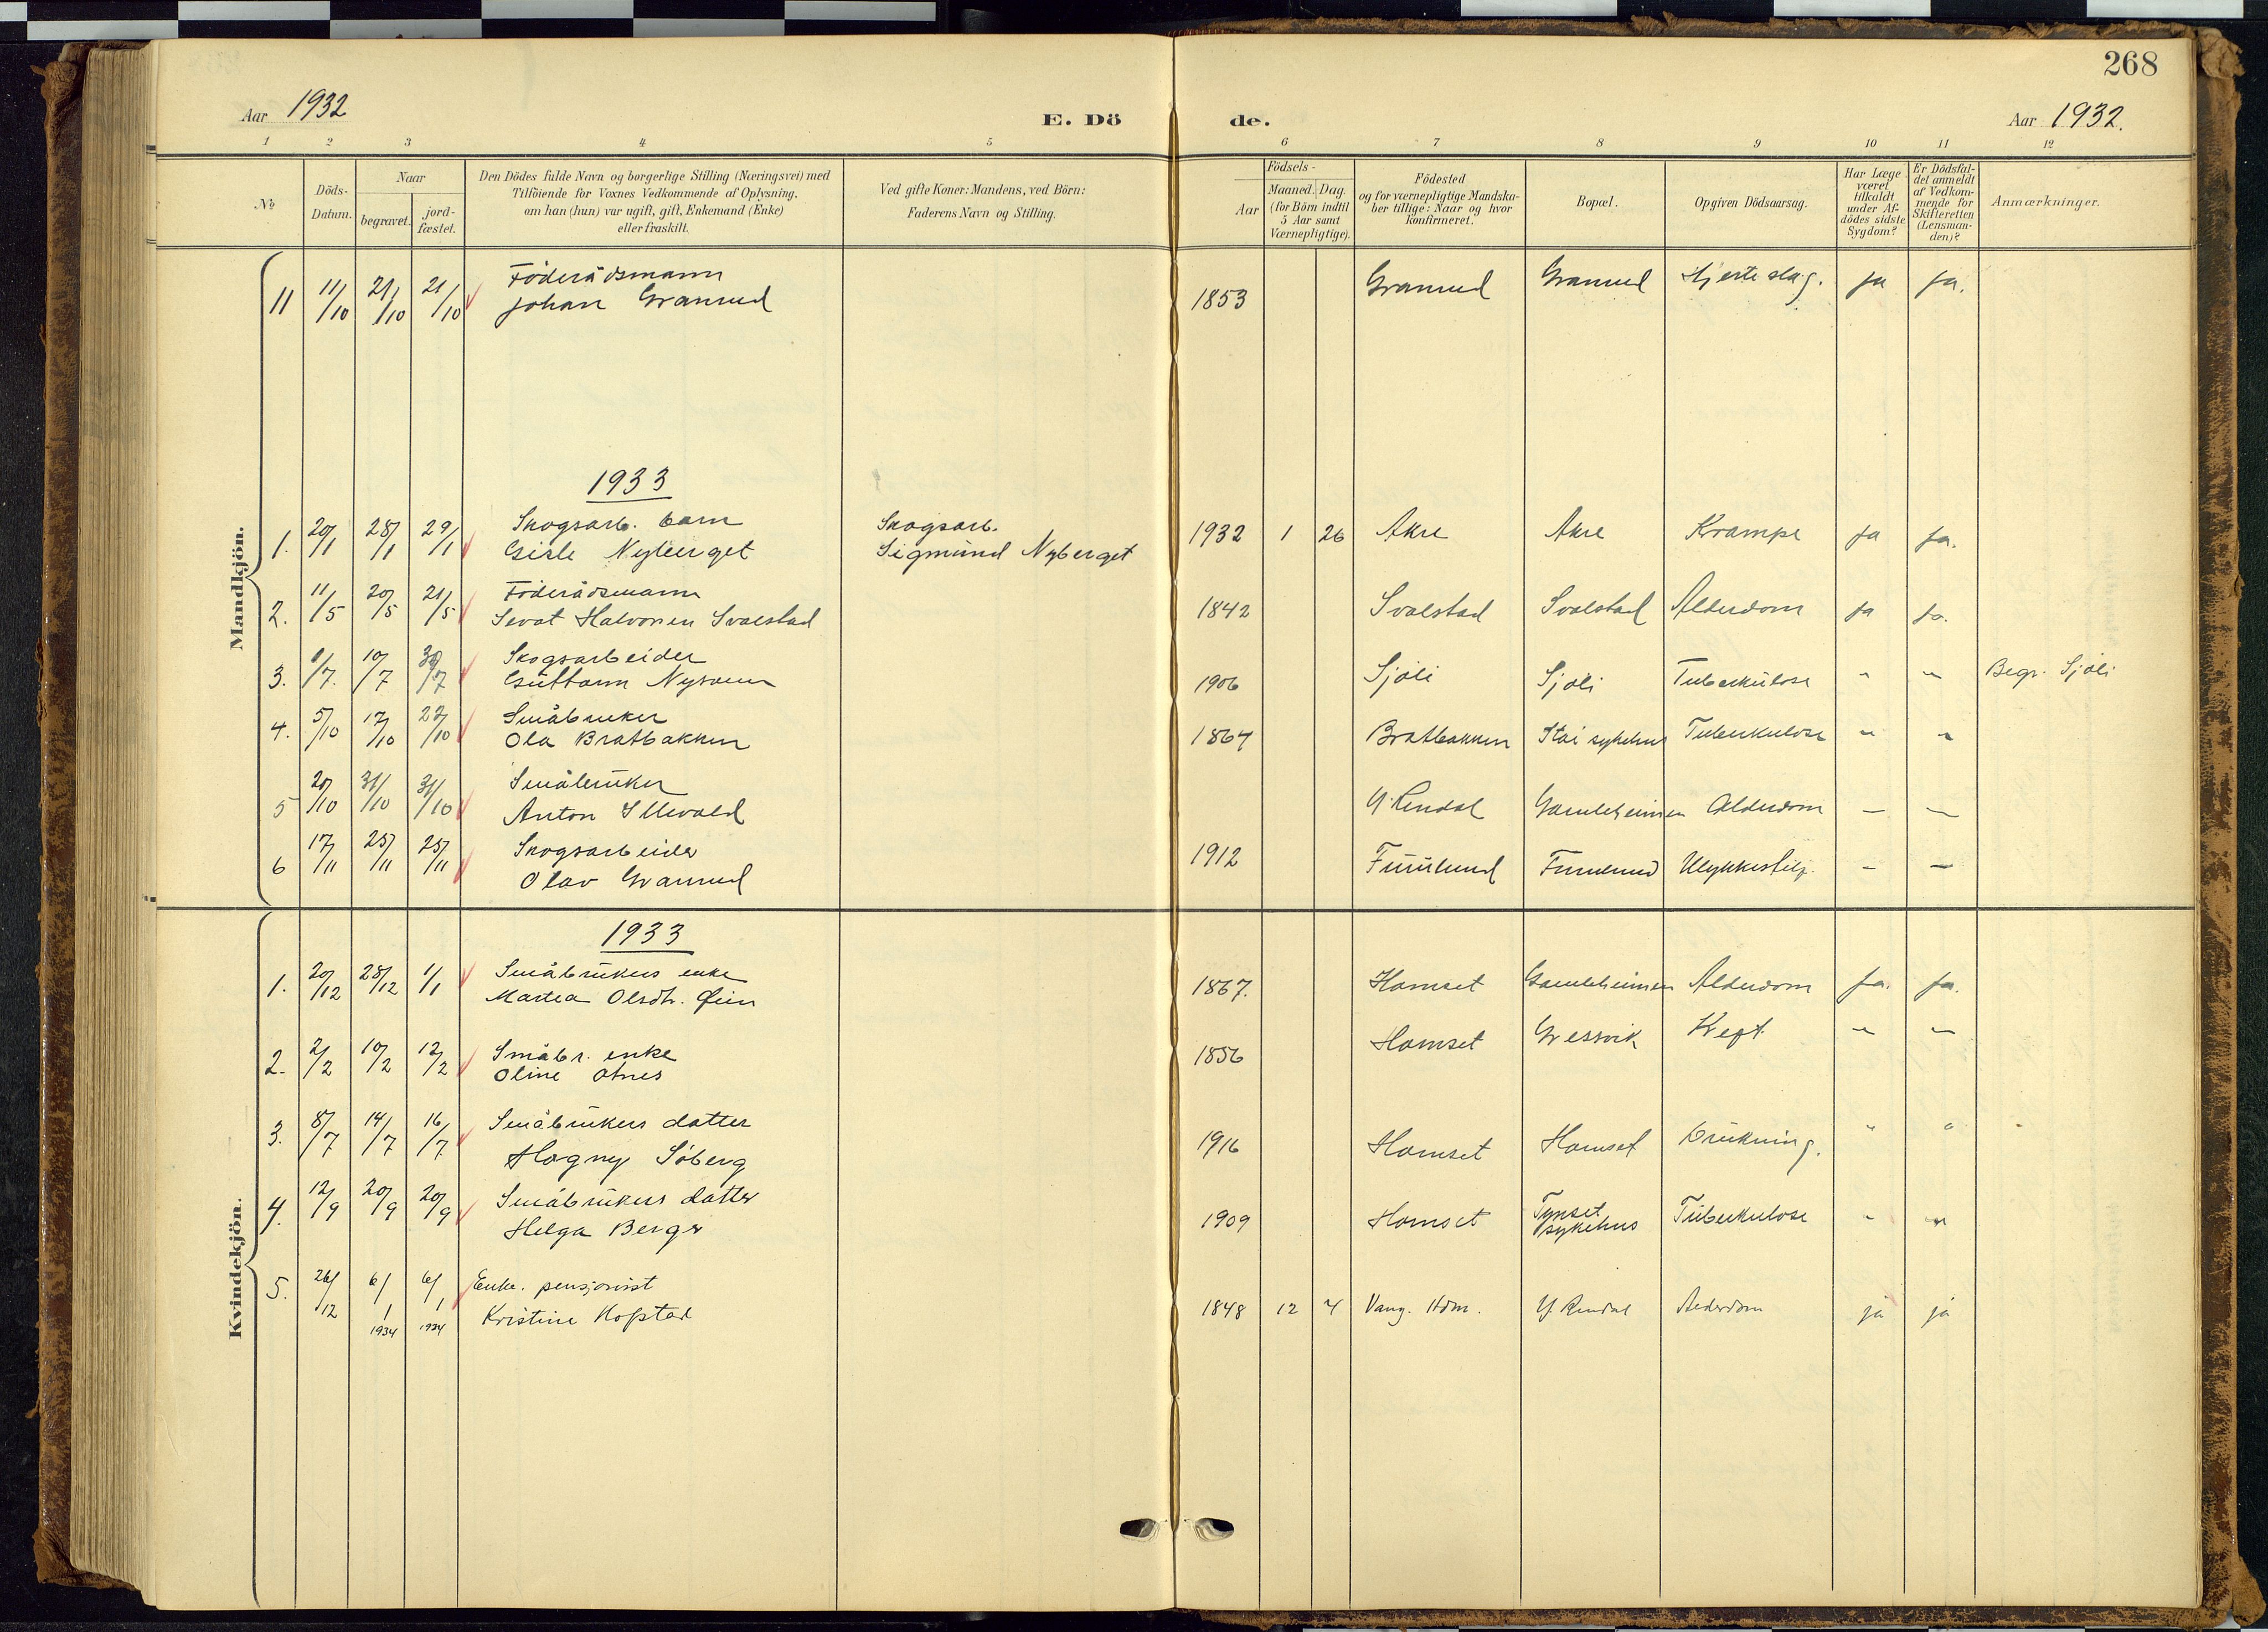 268
Aar 1932
E. Dö
de.
Aar 1932.
1 2 3 4 5 6 7 8 9 10 11 12
No
Döds-
Datum.
Naar
begravet.
jord-
fæstet.
Den Dödes fulde Navn og borgerlige Stilling (Næringsvei) med
Tilföiende for Voxnes Vedkommende af Oplysning.
om han (hun) var ugift, gift, Enkemand (Enke)
eller fraskilt.
Ved gifte Koner: Mandens, ved Börn:
Faderens Navn og Stilling.
Födsels-
Aar
Maaned. Dag.
(for Börn indtil
5 Aar samt
Værnepligtige).
Födested
og for værnepligtige Mandska-
ber tillige: Naar og hvor
konfirmeret.
Bopæl.
Opgiven Dödsaarsag.
Har Læge
været
tilkaldt
under Af-
dödes sidste
Sygdom?
Er Dödsfal-
det anmeldt
af Vedkom-
mende for
Skifteretten
(Lensman-
den)?
Anmærkninger.
Mandkjön.
Föderådsmann
11 11/10 21/10 21/10 Johan Granrud 1853 Granrud Granrud Hjerteslag. ja ja.
1933
Skogsarb. barn Skogsarb.
1. 20/1 28/1 29/1 Gisle Nyberget Sigmund Nyberget 1932 1 26 Akre Akre Krampe ja ja.
Föderådsmann
2. 11/5 20/5 21/5 Sivat Halvorsen Svalstad 1842 Svalstad Svalstad Alderdom ja ja.
Skogsarbeider
3. 1/7. 10/7 30/7 Guttorm 1906 Sjøli Sjøli Tuberkulose " " Begr. Sjøli
Småbruker
4. 5/10 17/10 22/10 Ola Bratbakken 1864 Bratbakken Stai sykehus Tuberkulose " "
Småbruker
5 20/10 31/10 31/10 Anton Y. Rendal Gamleheimen Alderdom — —
Skogsarbeider
6 17/11 25/11 25/11 Olav Granrud 1912 Furulund Furulund — —
Kvindekjön.
1933
Småbrukers enke
1. 20/12 28/12 1/1 Martea Olsdtr. 1867. Hornset Gamleheimen Alderdom ja. ja.
Småbr. enke
2. 2/2 10/2 12/2 Oline Otnes 1856 Hornset Gressvik Kreft. " "
Småbrukers datter
3. 8/7 14/7 16/7 Hagny Söberg 1916 Hornset Hornset Drukning. " "
Småbrukers datter Tynset
4. 12/9 20/9 20/9 Helga Berger 1909 Hornset sykehus Tuberkulose " "
Enke. pensjonist
5. 26/12 6/1 6/1 Kristine Hofstad 1848 12 4 Vang. Hdm. Y. Rendal Alderdom ja ja
1934 1934